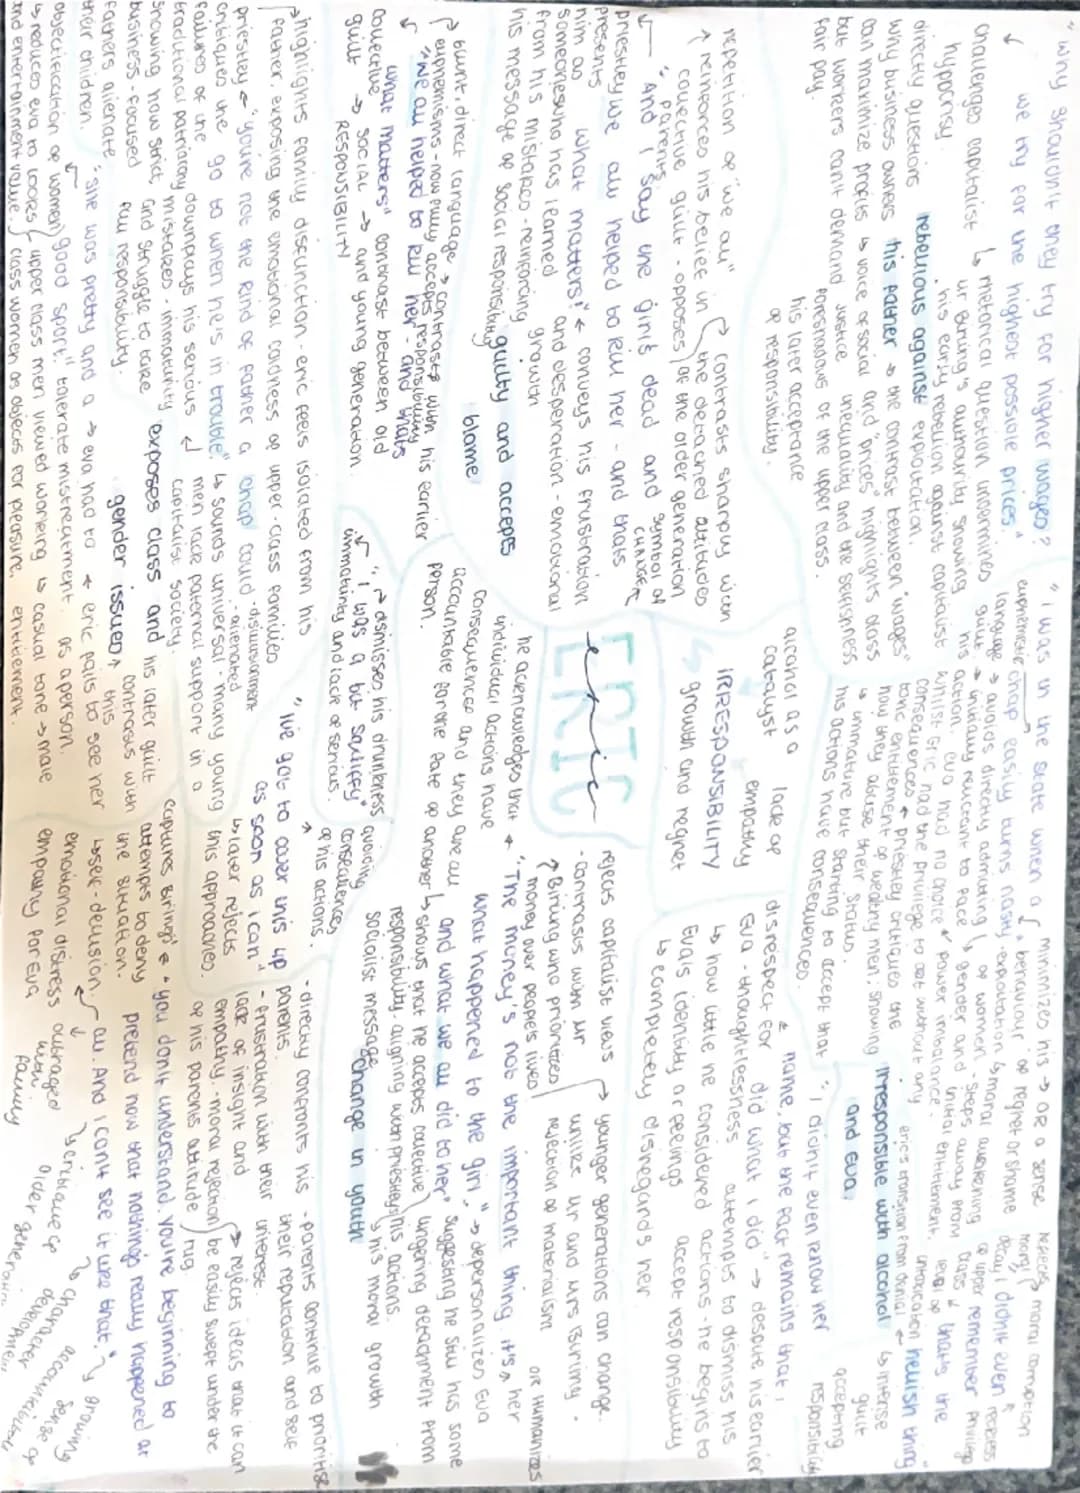 "why shouldn't they try for higher wages?
we try for the highest possible prices."
challenges capitalist hypocrisy.
↳ rhetorical question undermines
mr Birling's authority showing
his early rebellion against capitalist
exploitation.
directly questions
why business owners
can maximize profits
but workers can't demand
fair pay.
rebellious against
his father
→ the contrast between "wages"
and "prices" highlights class
inequality and the selfishness
of the upper class.
↳ voice of social
justice
foreshadows
his later acceptance
of responsibility.
repetition of "we all"
↗ reinforces his belief in
collective guilt - opposes
parents.
contrasts sharply with
the detached attitudes
of the older generation
"And I say the girl's dead and
we all helped to kill her - and that's
what matters."
priestley
presents
him as
someone who has learned
from his mistakes - reinforcing
his message of social responsibility
symbol of
change
← conveys his frustration
and desperation - emotional
growth
guilty and accepts
blame
blunt, direct language → contrasts with his earlier
euphemisms - now fully accepts responsibility
"we all helped to kill her - and thats
what matters"
collective
guilt → social
RESPONSIBILITY
contrast between old
→ and young generation
highlights family disfunction - eric feels isolated from his
father, exposing the emotional coldness of upper-class families
"you're not the kind of father a chap could
go to when he's in trouble."
priestley
critiques the
failures of the
traditional patriarchy
showing how strict,
business-focused
fathers alienate
their children
downplays his serious
mistakes - immaturity
and struggle to take
full responsibility
- disillusionment
- alienated
↳ sounds universal - many young
men lack paternal support in a
capitalist society.
exposes class and
gender issues
his later guilt
contrasts with
this
"she was pretty and a
good sport."
objectification of
women
↳ reduces eva to looks
and entertainment value.
→ eva had to
tolerate mistreatment.
← eric fails to see her
as a person.
upper class men viewed working
class women as objects for pleasure.
↳ casual tone → male
entitlement.
eric
ERIC
IRRESPONSIBILITY
↳ growth and regret
alcohol as a
catalyst
lack of
empathy
"I was in the state when a
chap easily turns nasty"
euphemistic
language → avoids directly admitting
guilt → initially reluctant to face his
action.
minimizes his
behaviour
→ or a sense
of regret or shame
- exploitation
of women
↳ moral awakening
- steps away from
initial entitlement.
↳ gender and
class
power imbalance.
eva had no choice
whilst Eric had the privilege to act without any
consequences
← priestley critiques the
toxic entitlement of wealthy men; showing
how they abuse their status.
↳ immature but starting to accept that
his actions have consequences.
irresponsible with alcohol
and Eva
moral corruption
I didn't even
remember
that's the
hellish thing"
eric's transition from denial
↳ intense
guilt
accepting
responsibility
"I didn't even know her
name, but the fact remains that I
did what I did"
disrespect for
Eva - thoughtlessness
↳ how little he considered
Eva's identity or feelings
↳ completely disregards her.
→ despite his earlier
attempts to dismiss his
actions - he begins to
accept responsibility
rejects capitalist views
- contrasts with mr
Birling who prioritized
money over people's lives
→ younger generations can change.
unlike mr and mrs Birling.
rejection of materialism
"The money's not the important thing. it's
what happened to the girl
and what we all did to her"
he acknowledges that
individual actions have
consequences and they are all
accountable for the fate of another
person.
↳ shows that he accepts collective
responsibility, aligning with Priestley's
socialist message
or humanizes
her
→ depersonalizes Eva
suggesting he still has some
lingering detachment from
his actions.
↳ his moral growth
change in youth
"I was a bit squiffy"
→ dismisses his drunkeness
immaturity and lack of serious
avoiding
consequences
of his actions.
"I've got to cover this up
as soon as I can"
↳ later rejects
this approached.
captures Birling's
attempts to deny
the situation.
↳ self-delusion.
- directly confronts his
parents.
- frustration with their
lack of insight and
empathy.
- moral rejection
of his parents attitude
- parents continue to prioritise
their reputation and self
interest.
→ rejects ideas that it can
be easily swept under the
rug.
"you don't understand. you're beginning to
pretend now that nothing's really happened at
all. And I can't see it like that."
emotional distress
empathy for Eva
outraged
with
family
↳ critique of
older generation
↳ character
development
↳ growing
sense of
accountability